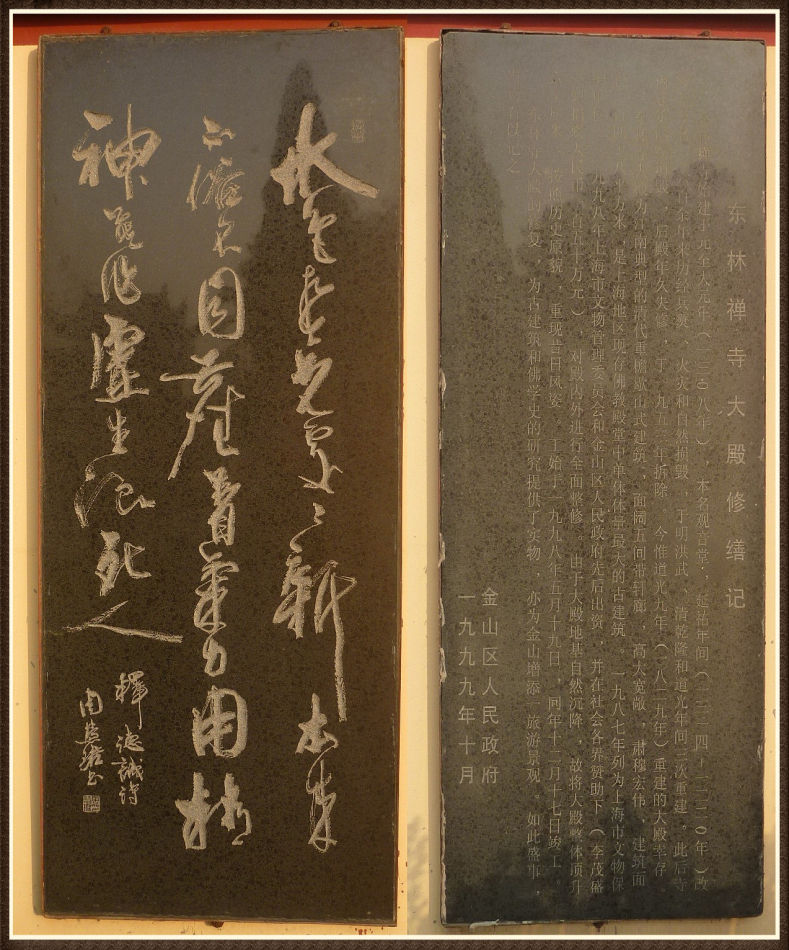 东林禅寺大殿修缮记
建于元至大元年(一三0八年),本名观音堂,延祐年间(一三一四-一三二0年)改
年来历经兵燹、火灾和自然损毁,于明洪武、清乾隆和道光年间三次重建。此后寺
殿年久失修,于一九五 年拆除,今惟道光九年(一八二九年)重建的大殿幸存。
为江南典型的清代重檐歇山式建筑,面阔五间带封廊,高大宽敞,肃穆宏伟,建筑面
方米,是上海地区现存佛教殿堂中单体体量最大的古建筑,一九八七年列为上海市文物保
九八年上海市文物管理委员会和金山区人民政府先后出资,并在社会各界赞助下(李茂盛
五十万元),对殿内外进行全面修缮。由于大殿地基自然沉降,故将大殿整体顶升
历史原貌,重现昔日风姿。工始于一九九八年五月十九日,同年十二月十七日竣工。
复,为古建筑和佛学史的研究提供了实物,亦为金山增添一旅游景观。如此盛事,
以
金山区人民政府
一九九九年十月
水色春光處處新本来
不俗不同尘着气力用精
神莫作虚生浪死人
释德诚诗
周慧珺书